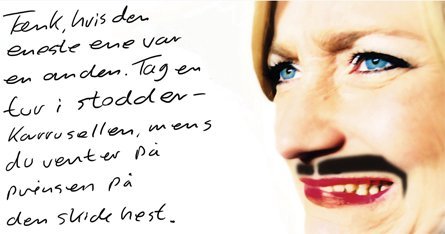 Tænk, hvis den
eneste ene var
en anden. Tag en
tur i stodder-
karrusellen, mens
du venter på
prinsen på
den skide hest.